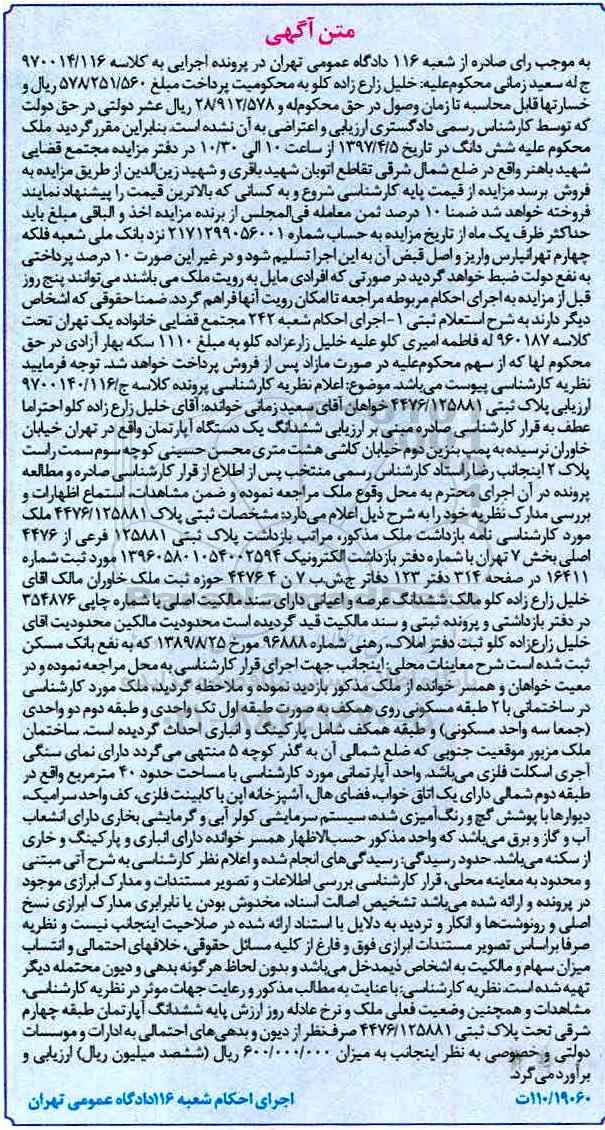 متن آگهی
به موجب رای صادره از شعبه ۱۱۶ دادگاه عمومی تهران در پرونده اجرایی به کلاسه ۹۷۰۰۱۴/۱۱۶
ج له سعید زمانی محکوم‌علیه: خلیل زارع زاده کلو به محکومیت پرداخت مبلغ ۵۷۸/۲۵۱/۵۶۰ ریال و
خسارتها قابل محاسبه تا زمان وصول در حق محکوم‌له و ۲۸/۹۱۲/۵۷۸ ریال عشر دولتی در حق دولت
که توسط کارشناس رسمی دادگستری ارزیابی و اعتراضی به آن نشده است. بنابراین مقرر گردید ملک
محکوم علیه شش دانگ در تاریخ ۱۳۹۷/۴/۵ از ساعت ۱۰ الی ۱۰/۳۰ در دفتر مزایده مجتمع قضایی
شهید باهنر واقع در ضلع شمال شرقی تقاطع اتوبان شهید باقری و شهید زین‌الدین از طریق مزایده به
فروش برسد مزایده از قیمت پایه کارشناسی شروع و به کسانی که بالاترین قیمت را پیشنهاد نمایند
فروخته خواهد شد ضمنا ۱۰ درصد ثمن معامله فی‌المجلس از برنده مزایده اخذ و الباقی مبلغ باید
حداکثر ظرف یک ماه از تاریخ مزایده به حساب شماره ۲۱۷۱۲۹۹۰۵۶۰۰۱ نزد بانک ملی شعبه فلکه
چهارم تهرانپارس واریز و اصل قبض آن به این اجرا تسلیم شود و در غیر این صورت ۱۰ درصد پرداختی
به نفع دولت ضبط خواهد گردید در صورتی که افرادی مایل به رویت ملک می باشند می‌توانند پنج روز
قبل از مزایده به اجرای احکام مربوطه مراجعه تا امکان رویت آنها فراهم گردد. ضمنا حقوقی که اشخاص
دیگر دارند به شرح استعلام ثبتی ۱- اجرای احکام شعبه ۲۴۲ مجتمع قضایی خانواده یک تهران تحت
کلاسه ۹۶۰۱۸۷ له فاطمه امیری کلو علیه خلیل زارعزاده کلو به مبلغ ۱۱۱۰ سکه بهار آزادی در حق
محکوم لها که از سهم محکوم‌علیه در صورت مازاد پس از فروش پرداخت خواهد شد. توجه فرمایید
نظریه کارشناسی پیوست می‌باشد. موضوع: اعلام نظریه کارشناسی پرونده کلاسه ج/۹۷۰۰۱۴۰/۱۱۶
ارزیابی پلاک ثبتی ۴۴۷۶/۱۲۵۸۸۱ خواهان آقای سعید زمانی خوانده: آقای خلیل زارع زاده کلو احتراما
عطف به قرار کارشناسی صادره مبنی بر ارزیابی ششدانگ یک دستگاه آپارتمان واقع در تهران خیابان
خاوران نرسیده به پمپ بنزین دوم خیابان کاشی هشت متری محسن حسینی کوچه سوم سمت راست
پلاک ۲ اینجانب رضا راستاد کارشناس رسمی منتخب پس از اطلاع از قرار کارشناسی صادره و مطالعه
پرونده در آن اجرای محترم به محل وقوع ملک مراجعه نموده و ضمن مشاهدات، استماع اظهارات و
بررسی مدارک نظریه خود را به شرح ذیل اعلام می‌دارد: مشخصات ثبتی پلاک ۴۴۷۶/۱۲۵۸۸۱ ملک
مورد کارشناسی نامه بازداشت ملک مذکور، مراتب بازداشت پلاک ثبتی ۱۲۵۸۸۱ فرعی از ۴۴۷۶
اصلی بخش ۷ تهران با شماره دفتر بازداشت الکترونیک ۱۳۹۶۰۵۸۰۱۰۵۴۰۰۲۵۹۴ مورد ثبت شماره
۱۶۴۱۱ در صفحه ۳۱۴ دفتر ۱۲۳ دفاتر ج.ش.ب ۷ ن ۴ ۴۴۷۶ حوزه ثبت ملک خاوران مالک اقای
خلیل زارع زاده کلو مالک ششدانگ عرصه و اعیانی دارای سند مالکیت اصلی با شماره چاپی ۳۵۴۸۷۶
در دفتر بازداشتی و پرونده ثبتی و سند مالکیت قید گردیده است محدودیت مالکین محدودیت اقای
خلیل زارع‌زاده کلو ثبت دفتر املاک، رهنی شماره ۹۶۸۸۸ مورخ ۱۳۸۹/۸/۲۵ که به نفع بانک مسکن
ثبت شده است شرح معاینات محلی: اینجانب جهت اجرای قرار کارشناسی به محل مراجعه نموده و در
معیت خواهان و همسر خوانده از ملک مذکور بازدید نموده و ملاحظه گردید، ملک مورد کارشناسی
در ساختمانی با ۲ طبقه مسکونی روی همکف به صورت طبقه اول تک واحدی و طبقه دوم دو واحدی
(جمعا سه واحد مسکونی) و طبقه همکف شامل پارکینگ و انباری احداث گردیده است. ساختمان
ملک مزبور موقعیت جنوبی که ضلع شمالی آن به گذر کوچه ۵ منتهی می‌گردد دارای نمای سنگی
آجری اسکلت فلزی می‌باشد. واحد آپارتمانی مورد کارشناسی با مساحت حدود ۴۰ مترمربع واقع در
طبقه دوم شمالی دارای یک اتاق خواب، فضای هال، آشپزخانه اپن با کابینت فلزی، کف واحد سرامیک،
دیوارها با پوشش گچ و رنگ‌آمیزی شده، سیستم سرمایشی کولر آبی و گرمایشی بخاری دارای انشعاب
آب و گاز و برق می‌باشد که واحد مذکور حسب‌الاظهار همسر خوانده دارای انباری و پارکینگ و خاری
از سکنه می‌باشد. حدود رسیدگی: رسیدگی‌های انجام شده و اعلام نظر کارشناسی به شرح آتی مبتنی
و محدود به معاینه محلی، قرار کارشناسی بررسی اطلاعات و تصویر مستندات و مدارک ابرازی موجود
در پرونده و ارائه شده می‌باشد تشخیص اصالت اسناد، مخدوش بودن یا نابرابری مدارک ابرازی نسخ
اصلی و رونوشت‌ها و انکار و تردید به دلایل یا استناد ارائه شده در صلاحیت اینجانب نیست و نظریه
صرفا براساس تصویر مستندات ابرازی فوق و فارغ از کلیه مسائل حقوقی، خلافهای احتمالی و انتساب
میزان سهام و مالکیت به اشخاص ذیمدخل می‌باشد و بدون لحاظ هر گونه بدهی و دیون محتمله دیگر
تهیه شده است. نظریه کارشناسی: با عنایت به مطالب مذکور و رعایت جهات موثر در نظریه کارشناسی،
مشاهدات و همچنین وضعیت فعلی ملک و نرخ عادله روز ارزش پایه ششدانگ آپارتمان طبقه چهارم
شرقی تحت پلاک ثبتی ۴۴۷۶/۱۲۵۸۸۱ صرف‌نظر از دیون و بدهی‌های احتمالی به ادارات و موسسات
دولتی و خصوصی به نظر اینجانب به میزان ۶۰۰/۰۰۰/۰۰۰ ریال (ششصد میلیون ریال) ارزیابی و
برآورد می‌گرد.
۱۱۰/۱۹۰۶۰ت اجرای احکام شعبه ۱۱۶دادگاه عمومی تهران